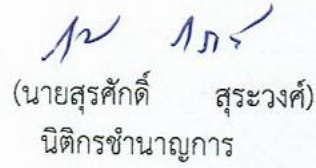 (นายสุรศักดิ์ สุระวงศ์)
นิติกรชำนาญการ